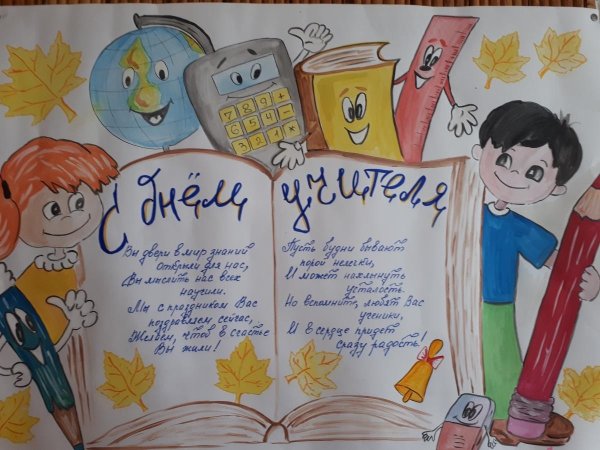 С днём учителя
7 8 9 +
6 5 4 -
3 2 1 ×
Вы двери в мир знаний
открыли для нас,
Вы мыслить нас всех
научили.
Мы с праздником Вас
поздравляем сейчас,
Желаем, чтоб в счастье
Вы жили!
Пусть будни бывают
порой нелегки,
И может нахлынуть
усталость.
Но вспомните, любят Вас
ученики,
И в сердце придет
сразу радость!